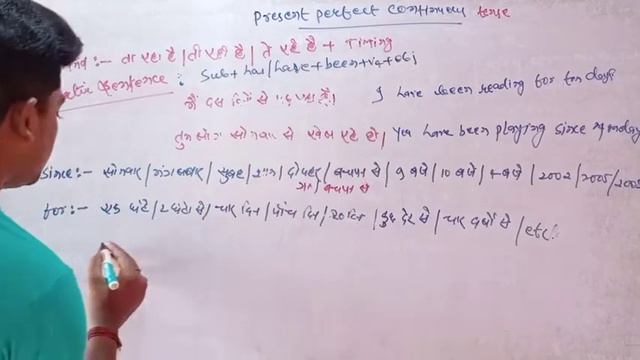 Present perfect continuous tense
ता रहा है / ती रही है / ते रहे है + Timing
Sentence : Sub + has/have + been + v4 + obj
मैं दस दिनों से पढ़ रहा हूँ। I have been reading for ten days
तुम लोग सोमवार से खेल रहे हो / You have been playing since monday
Since :- सोमवार / मंगलवार / सुबह / शाम / दोपहर / बचपन से / 9 बजे / 10 बजे / 4 बजे / 2002 / 2005 / 200
रात / बचपन से
for :- एक घंटे / 2 घंटा से / चार दिन / पाँच दिन / 20 दिन / कुछ देर से / चार वर्षों से / etc.